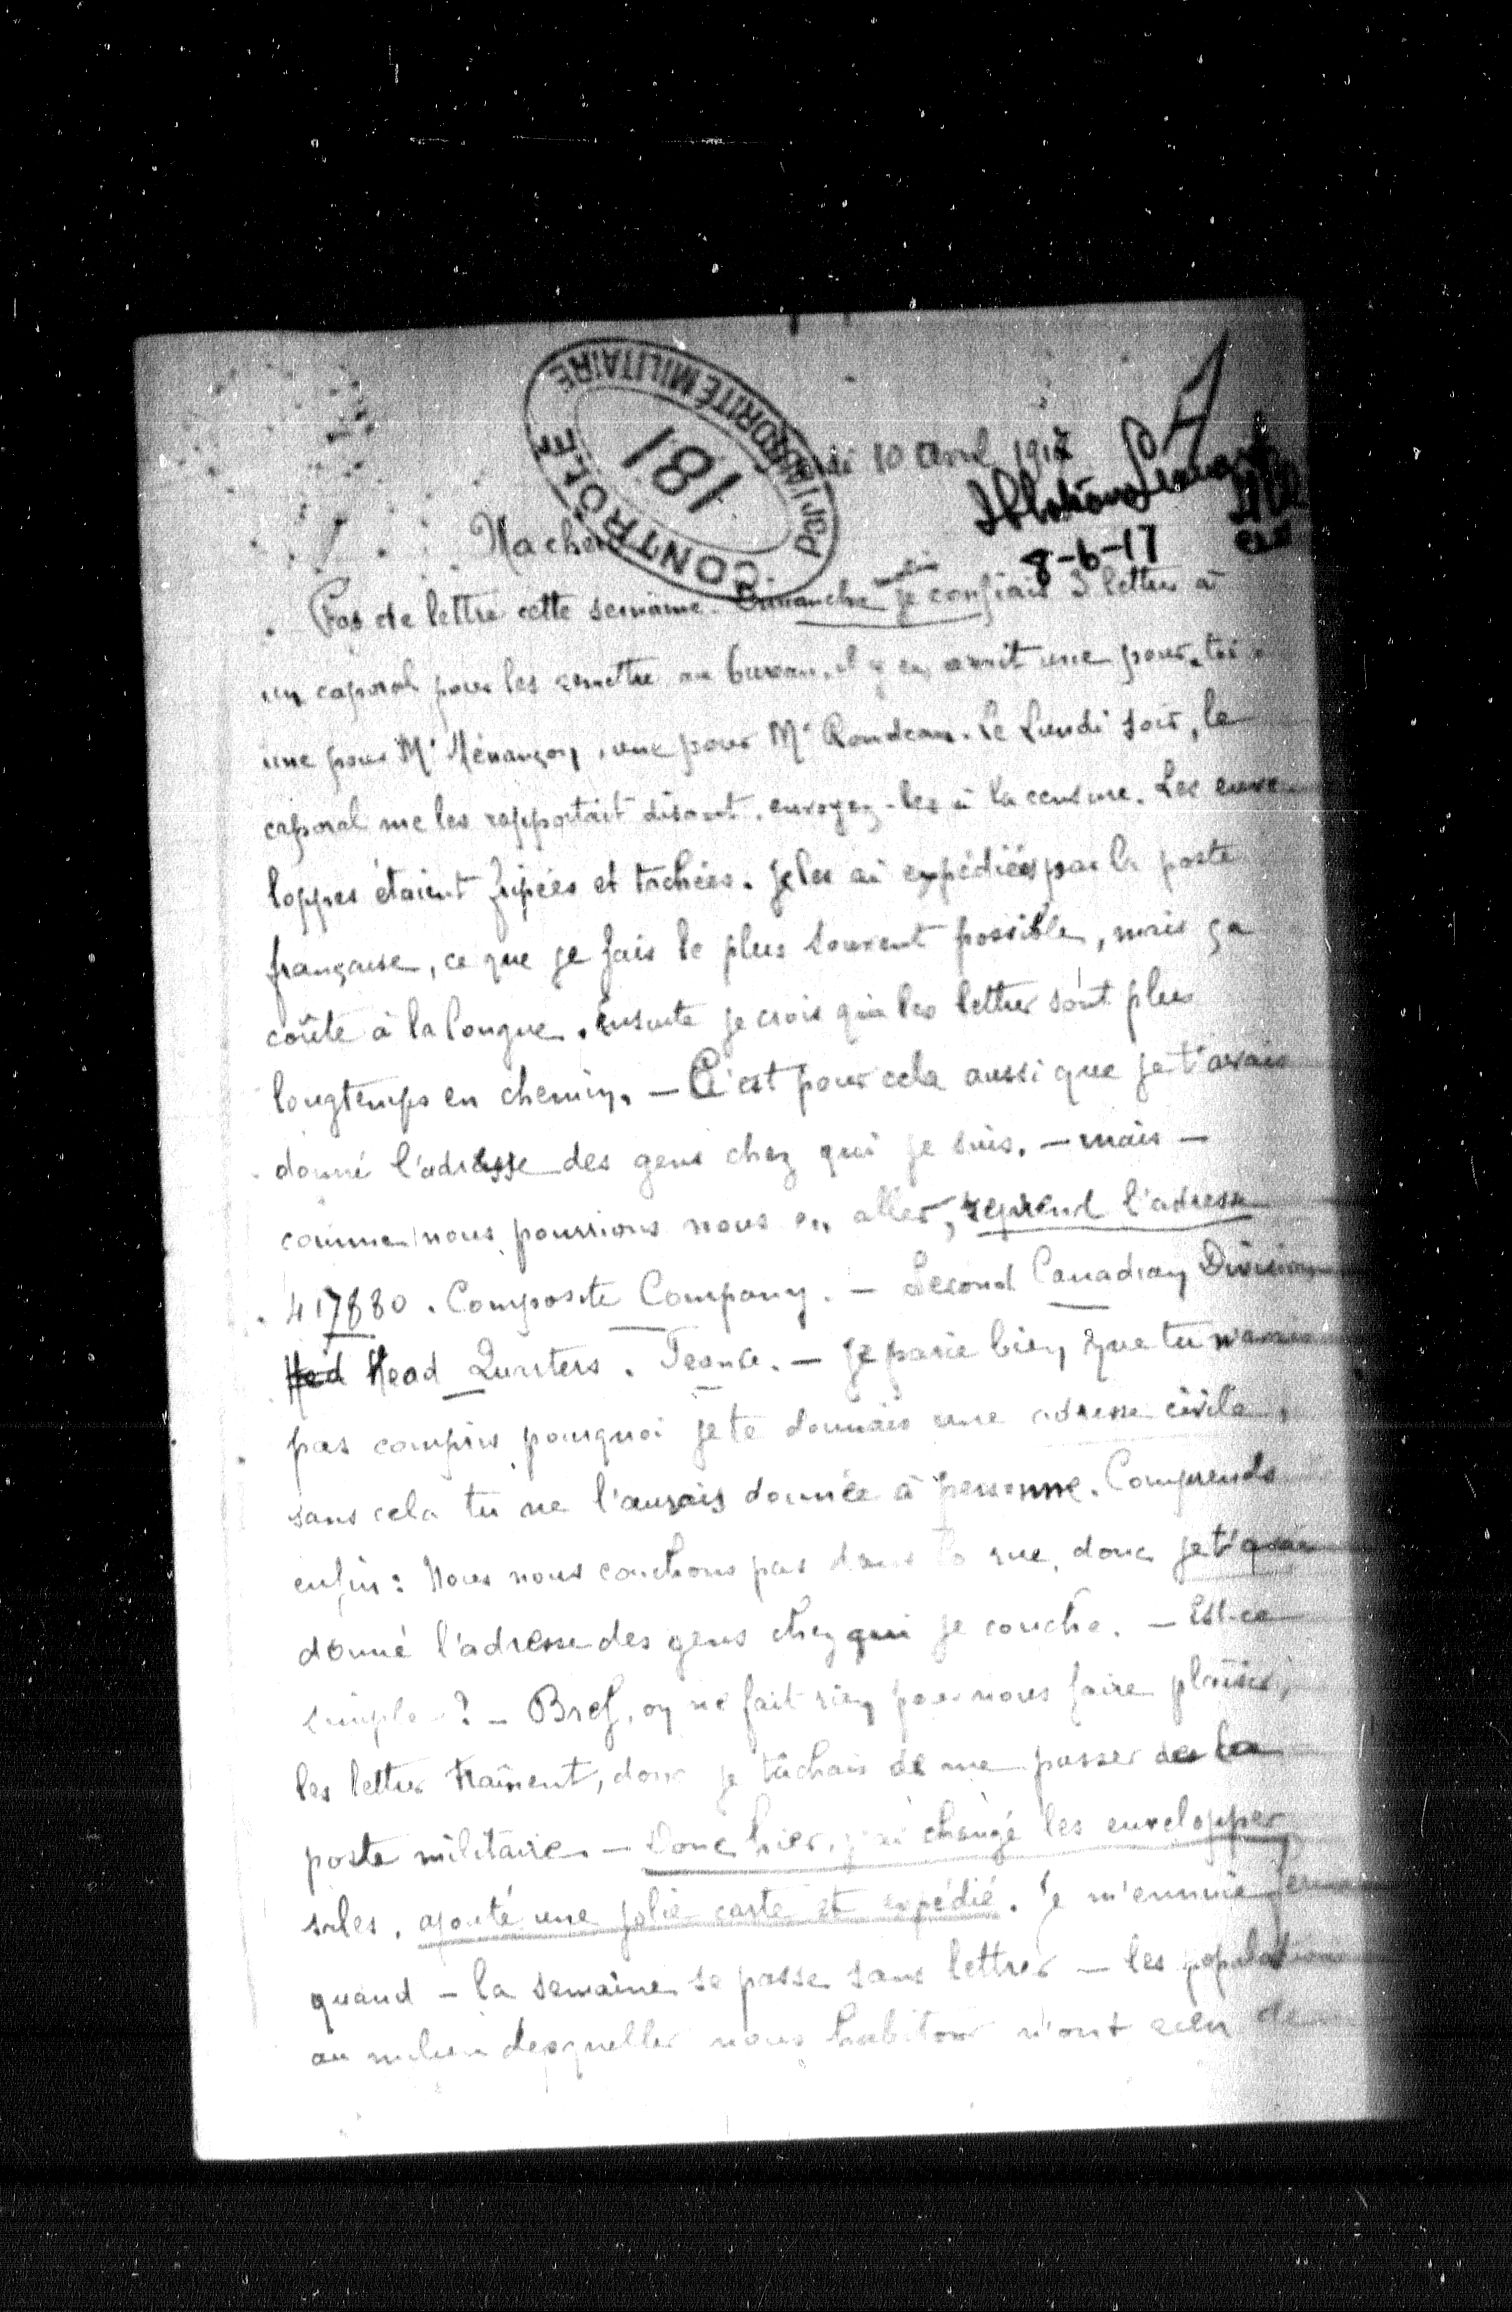 CONTRÔLÉ
181
PAR L'AUTORITÉ MILITAIRE
di 10 Avril 1917
8-6-17
Ma chère
Pas de lettre cette semaine. Dimanche je confiais 3 lettres à
un caporal pour les remettre au bureau, il y en avait une pour toi
une pour Mr Ménançon, une pour Mr Rondeau. Le Lundi soir, le
caporal me les rapportait disant, envoyez-les à la censure. Les enve
loppes étaient fripées et tachées. Je les ai expédiées par la poste
française, ce que je fais le plus souvent possible, mais ça
coûte à la longue. Ensuite je crois que les lettres sont plus
longtemps en chemin. — C'est pour cela aussi que je t'avais
donné l'adresse des gens chez qui je suis. — mais —
comme nous pourrions nous en aller, reprend l'adresse
417880. Composite Company. — Second Canadian Division
Hed Head Quarters. France. — Je parie bien que tu n'avais
pas compris pourquoi je te donnais une adresse civile,
sans cela tu ne l'aurais donnée à personne. Comprends
enfin: Nous nous couchons pas dans la rue, donc je t'avais
donné l'adresse des gens chez qui je couche. — Est-ce
simple? — Bref, on ne fait rien pour nous faire plaisir,
les lettres traînent, donc je tâchais de me passer de la
poste militaire. — Donc hier, j'ai changé les enveloppes
sales, ajouté une jolie carte et expédié. Je m'ennuie ferme
quand — la semaine se passe sans lettres — les populations
au milieu desquelles nous habitons n'ont rien de